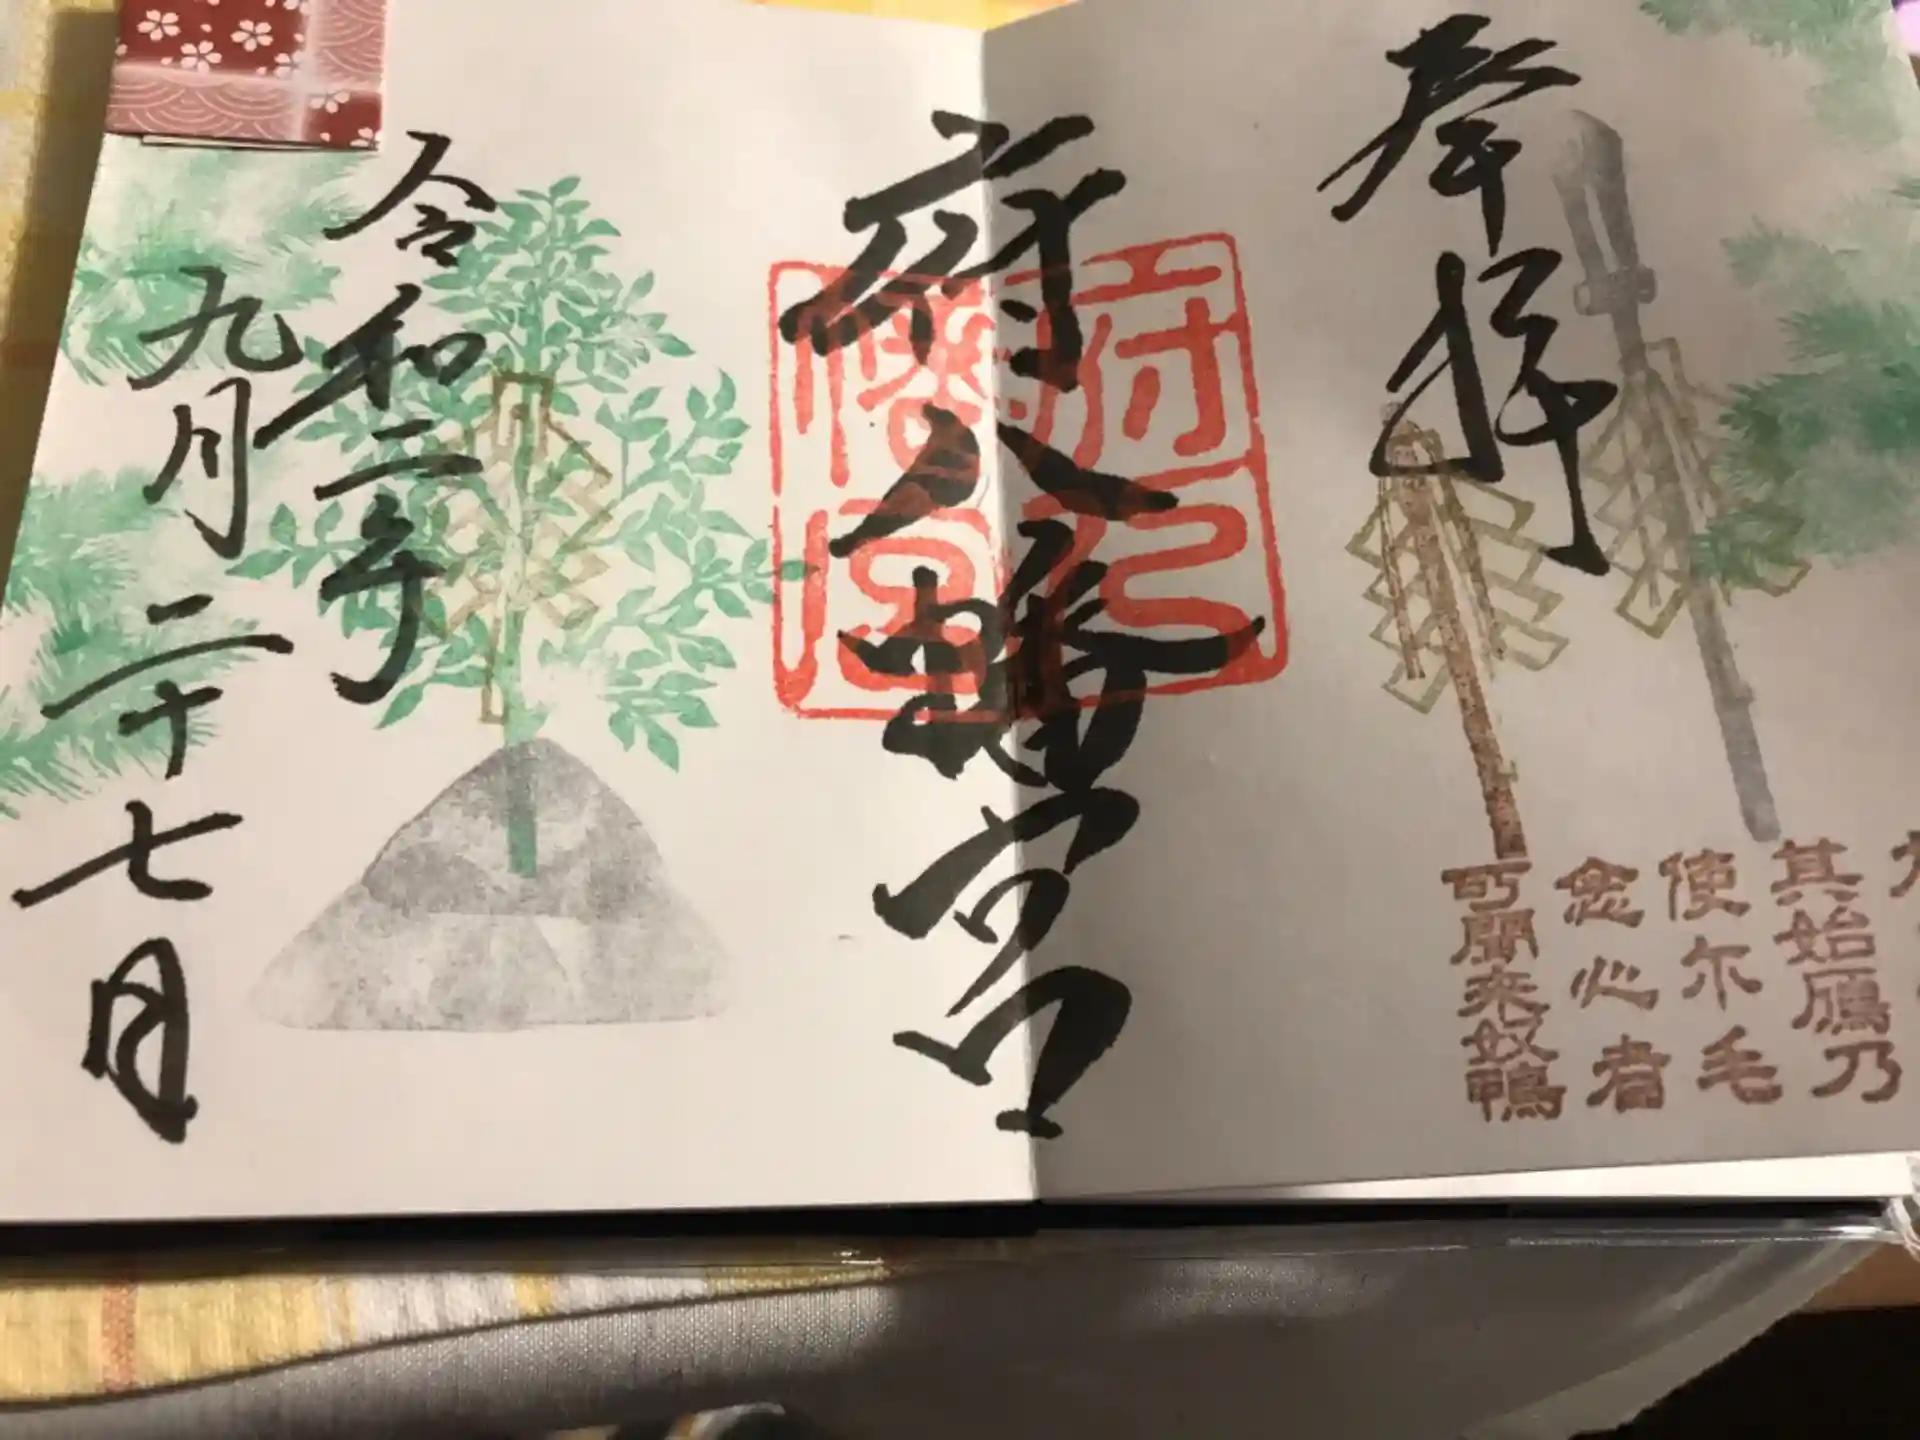 奉拝
府八幡宮
府八
幡宮
令和二年
九月二十七日
其始鴈乃
使尓毛
念心者
可聞来奴鴨